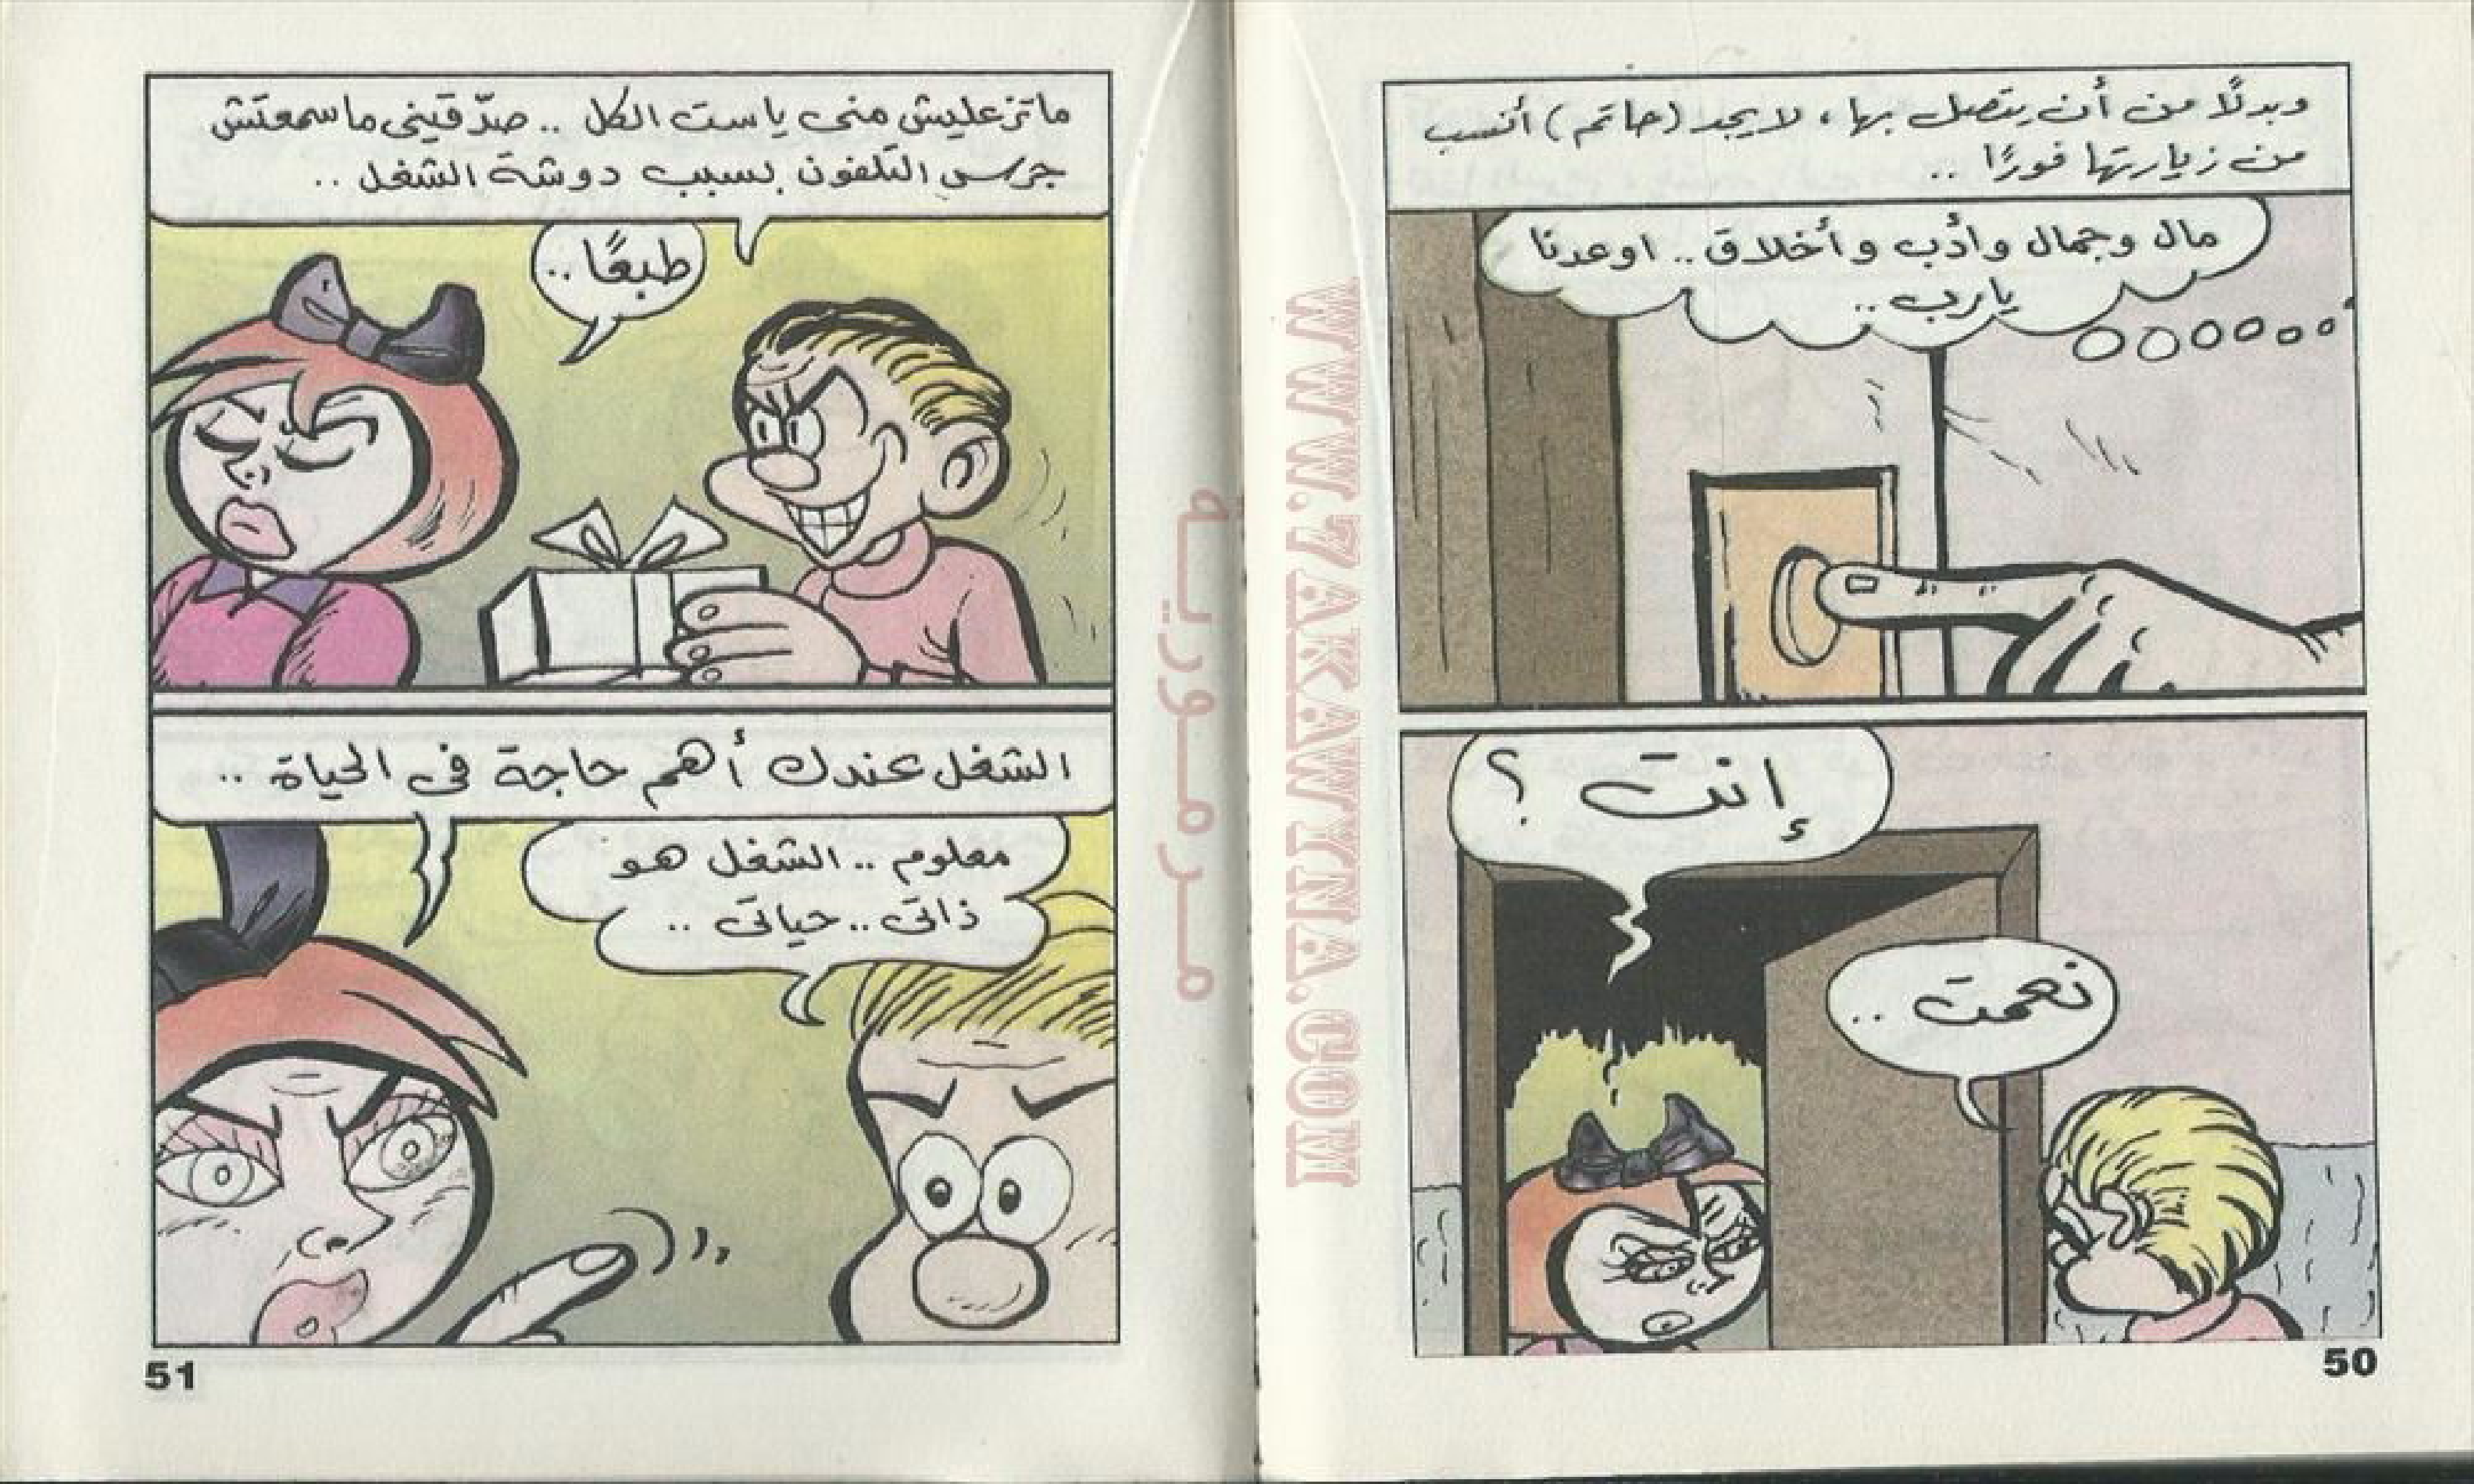 وبدلًا من أن يتصل بها، لا يجد (حاتم) أنسب
من زيارتها فورًا ..
مال وجمال وأدب وأخلاق .. اوعدنا
يارب ..
إنت ؟
نعمت ..
50
ماتزعليش منى ياست الكل .. صدّقينى ماسمعتش
جرس التلفون بسبب دوشة الشغل ..
طبعًا ..
الشغل عندك أهم حاجة فى الحياة ..
معلوم .. الشغل هو
ذاتى .. حياتى ..
51
WWW.7AKAWYNA.COM
مرمورية